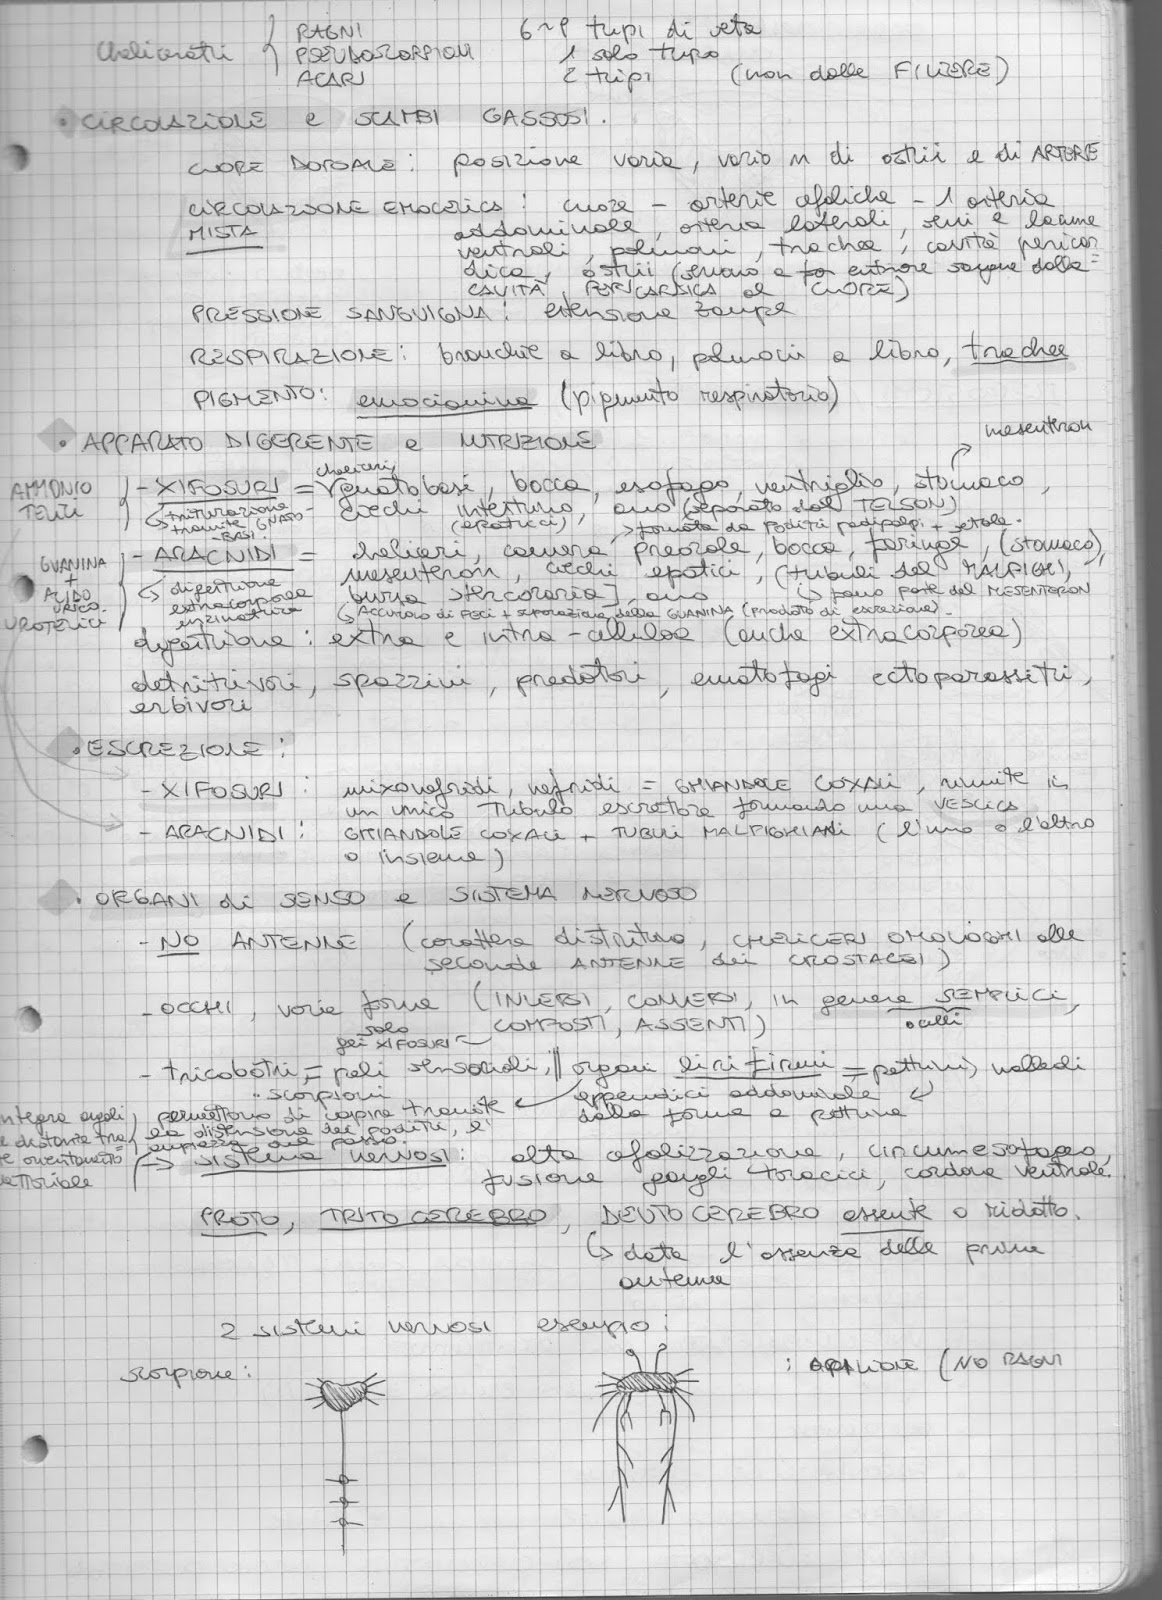 Cheliceratri { RAGNI 6~8 tipi di seta
PSEUDOSCORPIONI 1 solo tipo
ACARI 2 tipi (non dalle FILIERE)
• CIRCOLAZIONE e SCAMBI GASSOSI.
CUORE DORSALE: posizione varia, vario n di ostii e di ARTERIE
CIRCOLAZIONE EMOCELICA: cuore – arterie cefaliche – 1 arteria
MISTA addominale, arterie laterali, seni e lacune
ventrali, polmoni, trachee, cavità pericar
dica, ostii (servono a far entrare sangue dalla
CAVITÀ PERICARDICA al CUORE)
PRESSIONE SANGUIGNA: estensione zampe
RESPIRAZIONE: branchie a libro, polmoni a libro, trachee
PIGMENTO: emocianina (pigmento respiratorio)
• APPARATO DIGERENTE e NUTRIZIONE
mesenteron
AMMONIO
TELICI
- XIFOSURI = cheliceri, gnatobasi, bocca, esofago, ventriglio, stomaco,
↳ triturazione tramite GNATO-BASI.
ciechi intestino, ano (separato dal TELSON)
(epatici), ↳ formata da poditi pedipalpi + setole.
GUANINA
+
ACIDO
URICO.
UROTELICI
- ARACNIDI = cheliceri, camera preorale, bocca, faringe, (stomaco),
↳ digestione extracorporea enzimatica
mesenteron, ciechi epatici, (tubuli del MALPIGHI,
borsa stercoraria], ano ↳ fanno parte del MESENTERON
↳ Accumulo di FECI + separazione della GUANINA (prodotto di escrezione).
digestione: extra e intra-cellulare (anche extracorporea)
detritivori, spazzini, predatori, ematofagi ectoparassiti,
erbivori
• ESCREZIONE:
- XIFOSURI: mixonefridi, nefridi = GHIANDOLE COXALI, riunite in
un unico TUBULO escretore formando una VESCICA
- ARACNIDI: GHIANDOLE COXALI + TUBULI MALPIGHIANI (l'uno o l'altro
o insieme)
• ORGANI di SENSO e SISTEMA NERVOSO
- NO ANTENNE (carattere distintivo, CHELICERI OMOLOGHI alle
seconde ANTENNE dei CROSTACEI)
- OCCHI, varie forme (INVERSI, CONVERSI, in genere SEMPLICI,
solo
gei XIFOSURI COMPOSTI, ASSENTI) ocelli
- tricobotri = peli sensoriali, || organi lirifirmi = pettini, malleoli
scorpioni appendici addominale
dalla forma a pettine
permettono di capire tramite
la distensione dei poditi, l'
ampiezza del passo.
integra angoli
e distanze tra
e orientamento
vettoriale
→ sistema nervosi: alta cefalizzazione, circumesofageo,
fusione gangli toracici, cordone ventrale.
PROTO, TRITOCEREBRO, DEUTOCEREBRO assente o ridotto.
↳ data l'assenza delle prime
antenne
2 sistemi nervosi esempio:
scorpione: : OPILIONE (NO RAGNI